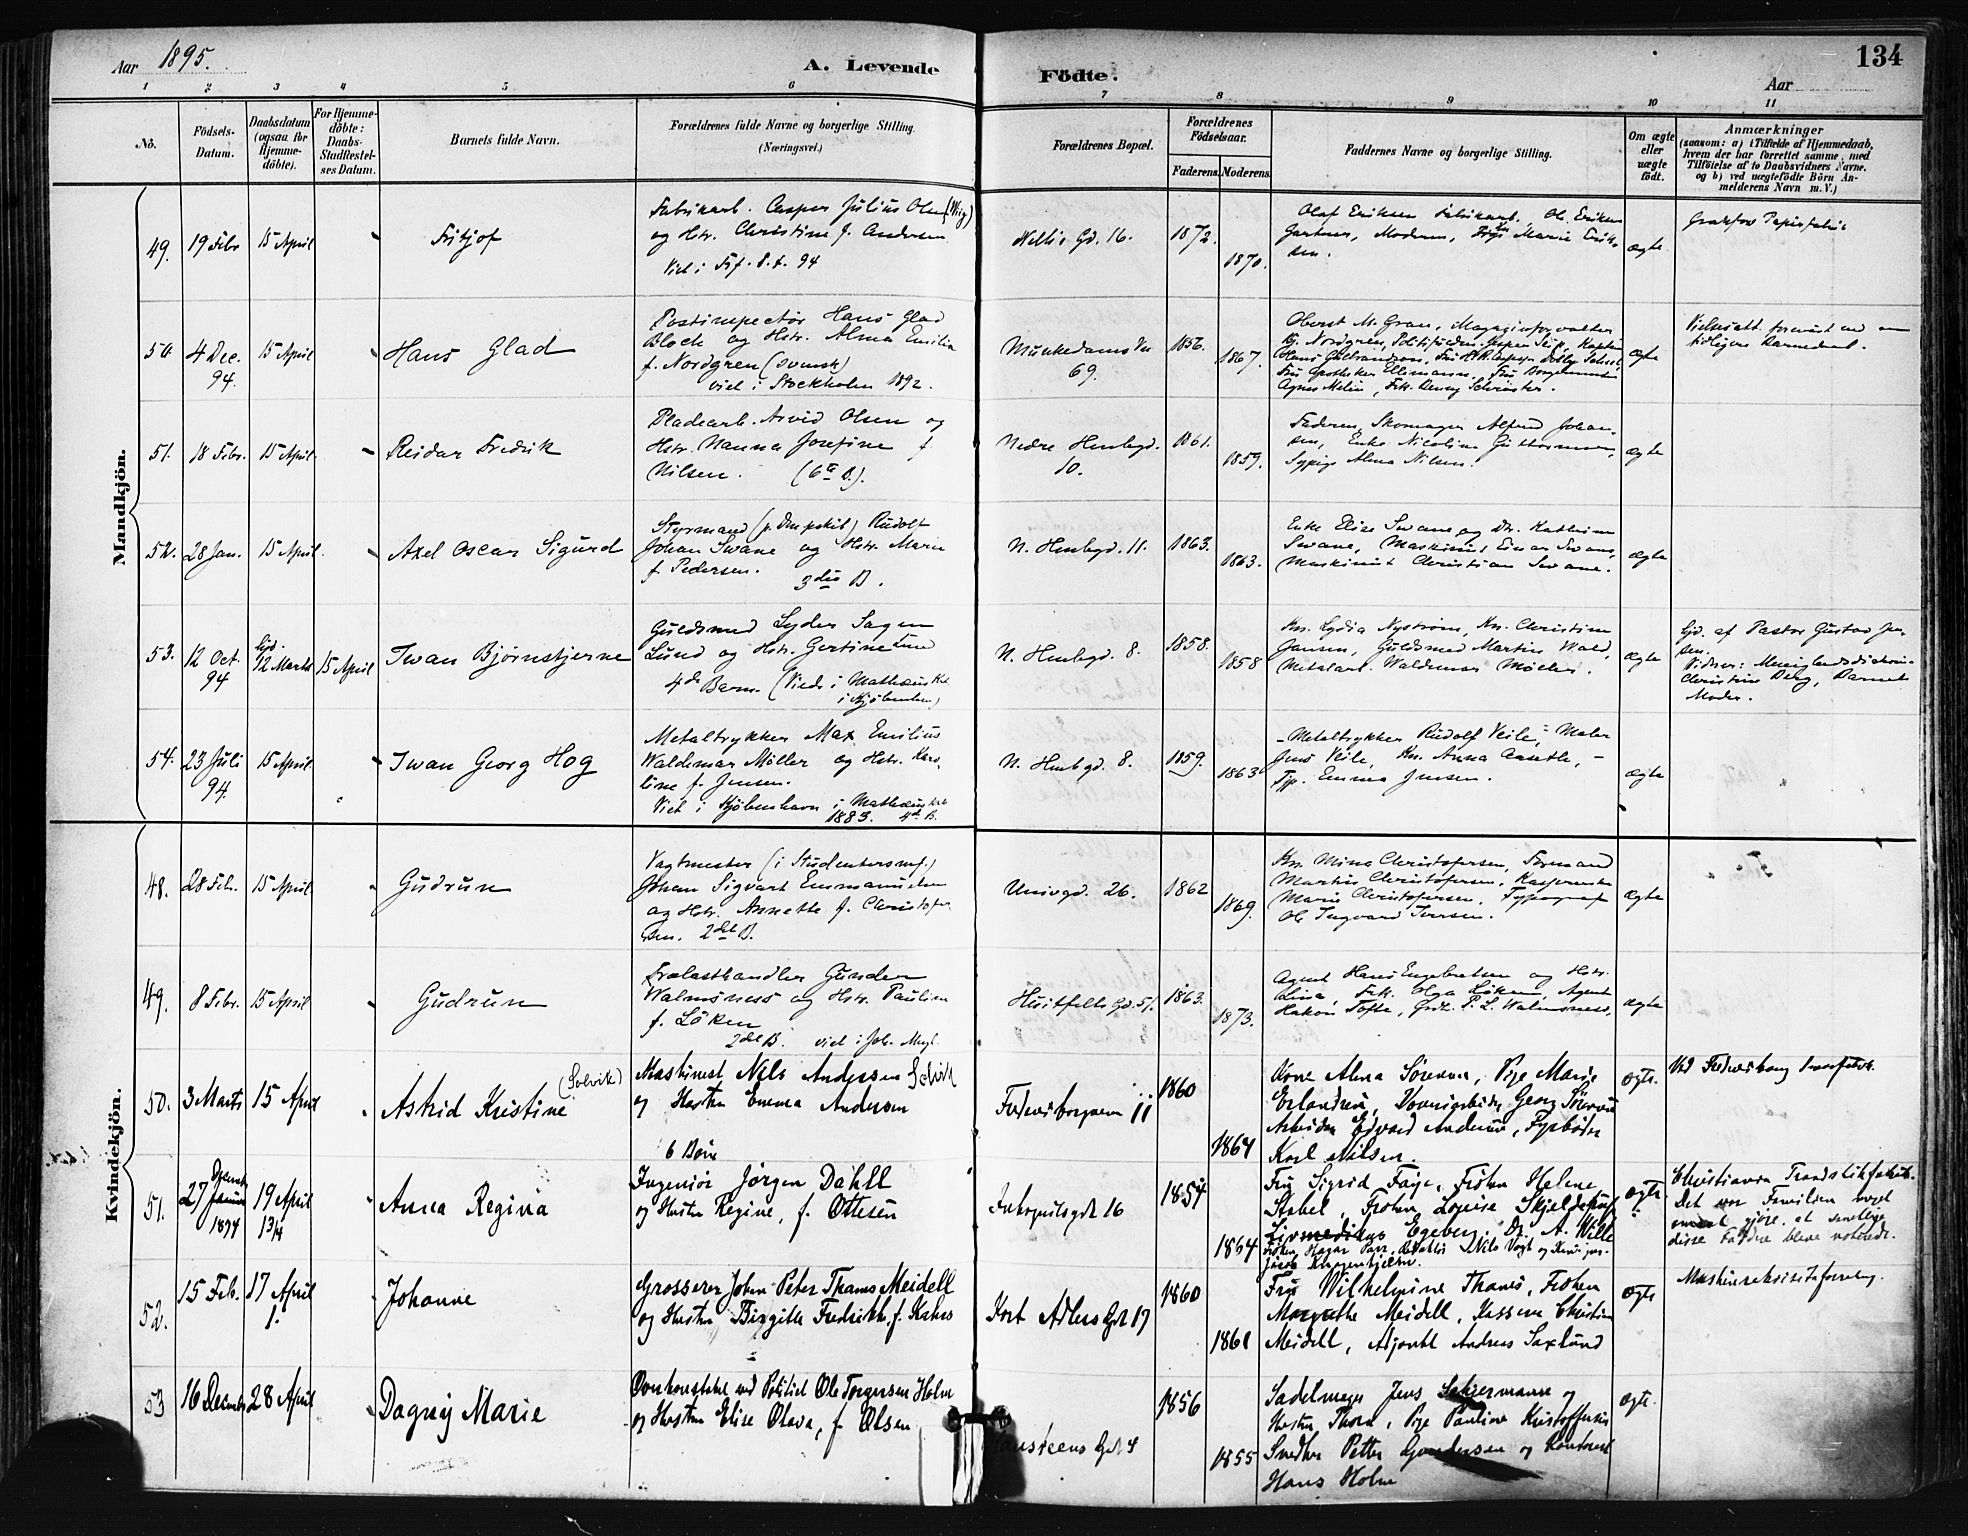 Aar 1895.
A. Levende
Födte.
Aar
134
1
2
3
4
5
6
7
8
9
10
11
No.
Födsels-
Datum.
Daabsdatum
(ogsaa for
Hjemme-
döbte).
For Hjemme-
döbte:
Daabs-
Stadfæstel-
ses Datum.
Barnets fulde Navn.
Forældrenes fulde Navne og borgerlige Stilling.
(Næringsvei.)
Forældrenes Bopæl.
Forældrenes
Födselsaar.
Faderens.
Moderens.
Faddernes Navne og borgerlige Stilling.
Om ægte
eller
uægte
födt.
Anmærkninger
(saasom: a) i Tilfælde af Hjemmedaab,
hvem der har forrettet samme, med
Tilföielse af to Daabsvidners Navne,
og b) ved uægtefödte Börn An-
melderens Navn m. V.)
Mandkjön.
49.
19 Febr
15 April
Fritjof
Fabrikarb. Casper Julius Olsen (Wiig)
og Hstr. Christine f. Andersen
Viet i 94
Gd. 16.
1872.
1870.
Olaf Eriksen Fabrikarb., Ol. Eriksen
Gartner, Moderen, Marie Erik-
sen.
ægte
Papirfabrik
50.
4 Dec.
94.
15 April
Hans Glad
Postinspectør Hans Glad
Bloch og Hstr. Alma Emilia
f. Nordgren (svensk)
viet i Stockholm 1892.
Munkedamsvn
69.
1856.
1867.
Oberst M. Gran, Magasinforvalter
Nordgren,
Fru Apotheker Ellimann, Fru
Agnes Melin, Frk.
ægte
51.
18 Febr.
15 April
Reidar Fredrik
Pladearb. Arvid Olsen og
Hstr. Nanna Josefine f.
Nilsen. (6te B.)
Nedre Hmbgd.
10.
1861.
1859.
Faderen, Skomager Alfred Johan-
sen, Enke Nicoline Guttormsen,
Sypige Alma Nilsen.
ægte
52.
28 Jan.
15 April
Axel Oscar Sigurd
Styrmand (p. Dampskib) Rudolf
Johan Swane og Hstr. Marie
f. Pedersen. 3die B.
N. Hmbgd. 11.
1863.
1863.
Enke Elise Swane og Dtr. Kathrine
Swane, Maskinist Einar Swane,
Maskinist Christian Swane.
ægte
53.
12 Oct.
94
Hjd.
12 Marts
15 April
Iwan Bjørnstjerne
Guldsmed Lyder Sagen
Lund og Hstr. Gertine Lund
4de Barn. (Viede i Mathæus K.
i Kjøbenhavn)
N. Hmbgd. 8.
1858.
1858
Kn. Lydia Nystrøm, Kn. Christine
Jansen, Guldsmed Martin Wald,
Metalarb. Waldemar Møller.
ægte
Hjd. af Pastor Gustav Jen-
sen.
Vidner: Menighedsdiakonisse
Christine Berg, Barnets
Moder.
54.
23 Juli
94.
15 April
Iwan Georg Hog
Metaltrykker Max Emilius
Waldemar Møller og Hstr. Karo-
line f. Jensen.
Viet i Kjøbenhavn i Mathæusk.
1883. 4de B.
N. Hmbgd. 8.
1859.
1863
- Metaltrykker Rudolf Veile, Maler
Jens Veile, Kn. Anna Anette, -
Typ. Emma Jensen.
ægte
Kvindekjön.
48.
28 Feb.
15 April
Gudrun
Vagtmester (i Studentersamf.)
Johan Sigvart Emmanuelsen
og Hstr. Annette f. Christofer-
sen. 2det B.
Univgd. 26.
1862
1869.
Kn. Mina Christofersen, Formand
Martin Christofersen, Kasserske
Marie Christofersen, Typograf
Ol. Ingvard Iversen.
ægte
49.
8 Febr.
15 April
Gudrun
Trælasthandler Gunder
Walmsness og Hstr. Pauline
f. Löken
2det B. viet i Job. Mgh.
Huitfelts Gd. 51.
1863.
1873.
Agent Hans Engebretsen og Hstr.
Lina, Frk. Olga Løken, Agent
Hakon Tofte, Grdr. P. L. Walmsness.
ægte
50.
3 Marts
15 April
Astrid Kristine (Solvik)
Maskinist Nils Andersen Solvik
og Hustru Emma Andersen
6 Børn
Frederiksborgveien 11
1860
1864
Kone Alma Sørensen, Pige Marie
Erlandsen, Georg Sørensen
Arbeider Edvard Andersen, Fyrbøder
Karl Nilsen.
ægte.
Ved Frederiksborg
51.
27 Januar
1894
19 April
13/4
Anna Regina
Ingeniør Jørgen Dahll
og Hustru Regine, f. Ottesen
Inkognitogdt 16
1854
1864
Fru Sigrid Faye, Frøken Helene
Stabel, Frøken Louise Skjelderup
Livmedikus Egeberg, Dr. A. Wille
Redaktør Nils Vogt
ægte
Christiania
Det var Familien meget
om at gjøre at samtlige
disse Faddere bleve noterede.
52.
15 Feb.
17 April
Johanne
Grosserer John Peter Thams Meidell
og Hustru Birgitte Fredrikke f. Kahrs
Kort Adlers Gdt 17
1860
1861
Fru Wilhelmine Thams, Frøken
Margrethe Meidell, Christian
Meidell, Adjunkt Andreas Saxlund
ægte
Maskinrekvisitaforretng.
53
16 December
28 April
Dagny Marie
Overkonstabel ved Politiet Ole Torgersen Holm
og Hustru Elise Olava, f. Olsen
Hansteens Gdt 4
1856
1855
Sadelmager Jens
Hustru Thora, Pige Pauline Kristoffersen
Snedker Petter Gundersen og Kontorist
Hans Holm
ægte.